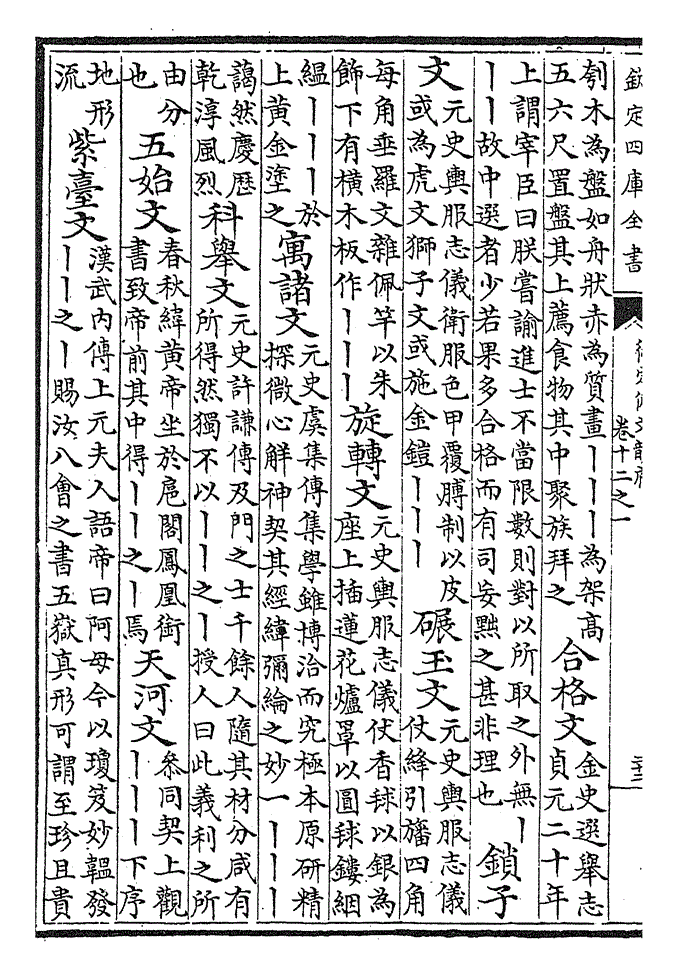 欽定四庫全書
御定佩文韻府 卷十二之一
刳木為盤如舟狀赤為質畫丨丨丨為架髙
五六尺置盤其上薦食物其中聚族拜之
合格文
金史選舉志
貞元二十年
上謂宰臣曰朕嘗諭進士不當限數則對以所取之外無丨
丨丨故中選者少若果多合格而有司妄黜之甚非理也
鎖子
文
元史輿服志儀衛服色甲覆膊制以皮
或為虎文獅子文或施金鎧丨丨丨
碾玉文
元史輿服志儀
仗絳引旛四角
每角垂羅文雜佩竿以朱
飾下有橫木板作丨丨丨
旋轉文
元史輿服志儀仗香毬以銀為
座上插蓮花爐罩以圓毬鏤絪
縕丨丨丨於
上黃金塗之
寓諸文
元史虞集傳集學雖博洽而究極本原研精
探微心解神契其經緯彌綸之妙一丨丨丨
藹然慶歴
乾淳風烈
科舉文
元史許謙傳及門之士千餘人隨其材分咸有
所得然獨不以丨丨之丨授人曰此義利之所
由分
也
五始文
春秋緯黃帝坐於扈閣鳳凰銜
書致帝前其中得丨丨之丨焉
天河文
叅同契上觀
丨丨丨下序
地形
流
紫臺文
漢武内傳上元夫人語帝曰阿母今以瓊笈妙韞發
丨丨之丨賜汝八會之書五嶽真形可謂至珍且貴